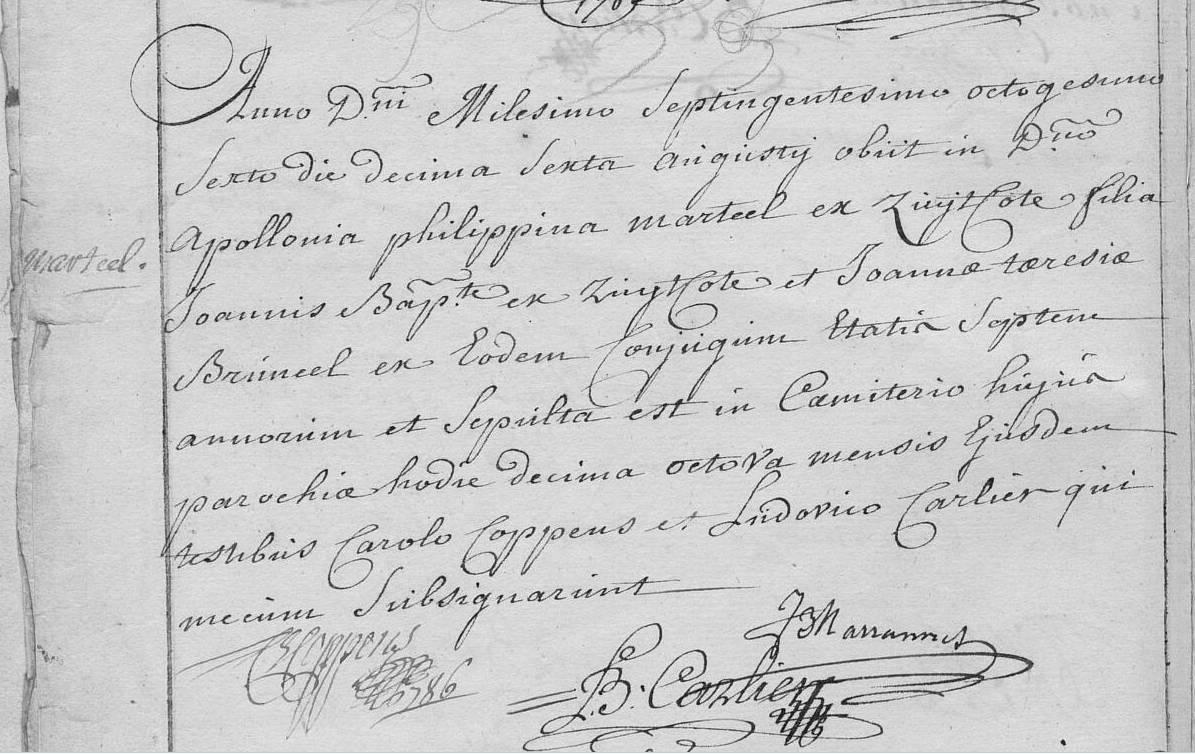 1786
Anno D.ni Milesimo Septingentesimo octogesimo
Sexto die decima Sexta augusty obiit in D.no
Apollonia philippina marteel ex Zuytcote filia
marteel.
Joannis Bap.te ex Zuytcote et Joannæ tæresiæ
Bruneel ex Eodem Conjugum Etatis Septem
annorum et Sepulta est in Cæmiterio hujus
parochiæ hodie decima octova mensis Ejusdem
testibus Carolo Coppens et Ludovico Carlier qui
mecum Subsignarunt
Coppens
1786
B. Carlier